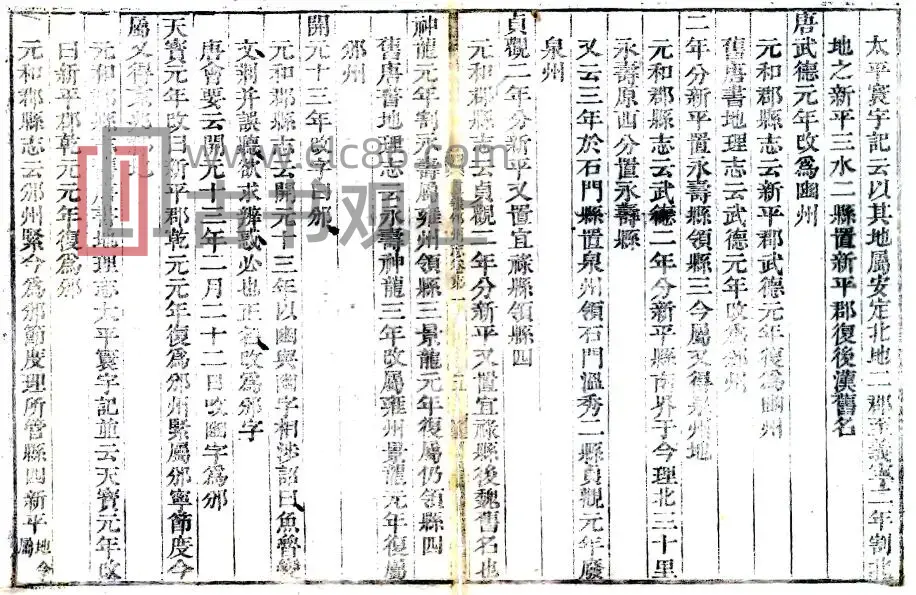 太平寰宇記云以其地屬安定北地二郡至義寧二年割北
地之新平三水二縣置新平郡復後漢舊名
唐武德元年改爲豳州
元和郡縣志云新平郡武德元年復爲豳州
舊唐書地理志云武德元年改爲豳州
二年分新平置永壽縣領縣三今屬又得泉州地
元和郡縣志云武德二年分新平縣南界于今理北三十里
永壽原西分置永壽縣
又云三年於石門縣置泉州領石門溫秀二縣貞觀元年廢
泉州
貞觀二年分新平又置宜祿縣領縣四
元和郡縣志云貞觀二年分新平又置宜祿縣後魏舊名也
神龍元年割永壽屬雍州領縣三景龍元年復屬仍領縣四
舊唐書地理志云永壽神龍三年改屬雍州景龍元年復屬
邠州
開元十三年改字曰邠
元和郡縣志云開元十三年以豳與幽字相涉詔曰魚魯變
文荆并誤聽欲求辨惑必也正名改爲邠字
唐會要云開元十三年二月二十二日改豳字爲邠
天寶元年改曰新平郡乾元元年復爲邠州緊屬邠寧節度今
屬又得 地
元和郡縣志 唐書地理志太平寰宇記並云天寶元年改
曰新平郡乾元元年復爲邠
元和郡縣志云邠州緊今爲邠節度理所管縣四新平 地今屬
www. c86.com
古书观止